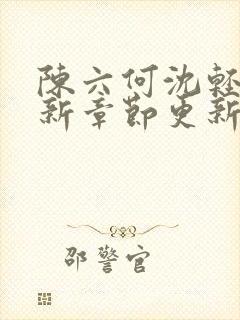 陳六何沈輕
新章節更新
邵警官